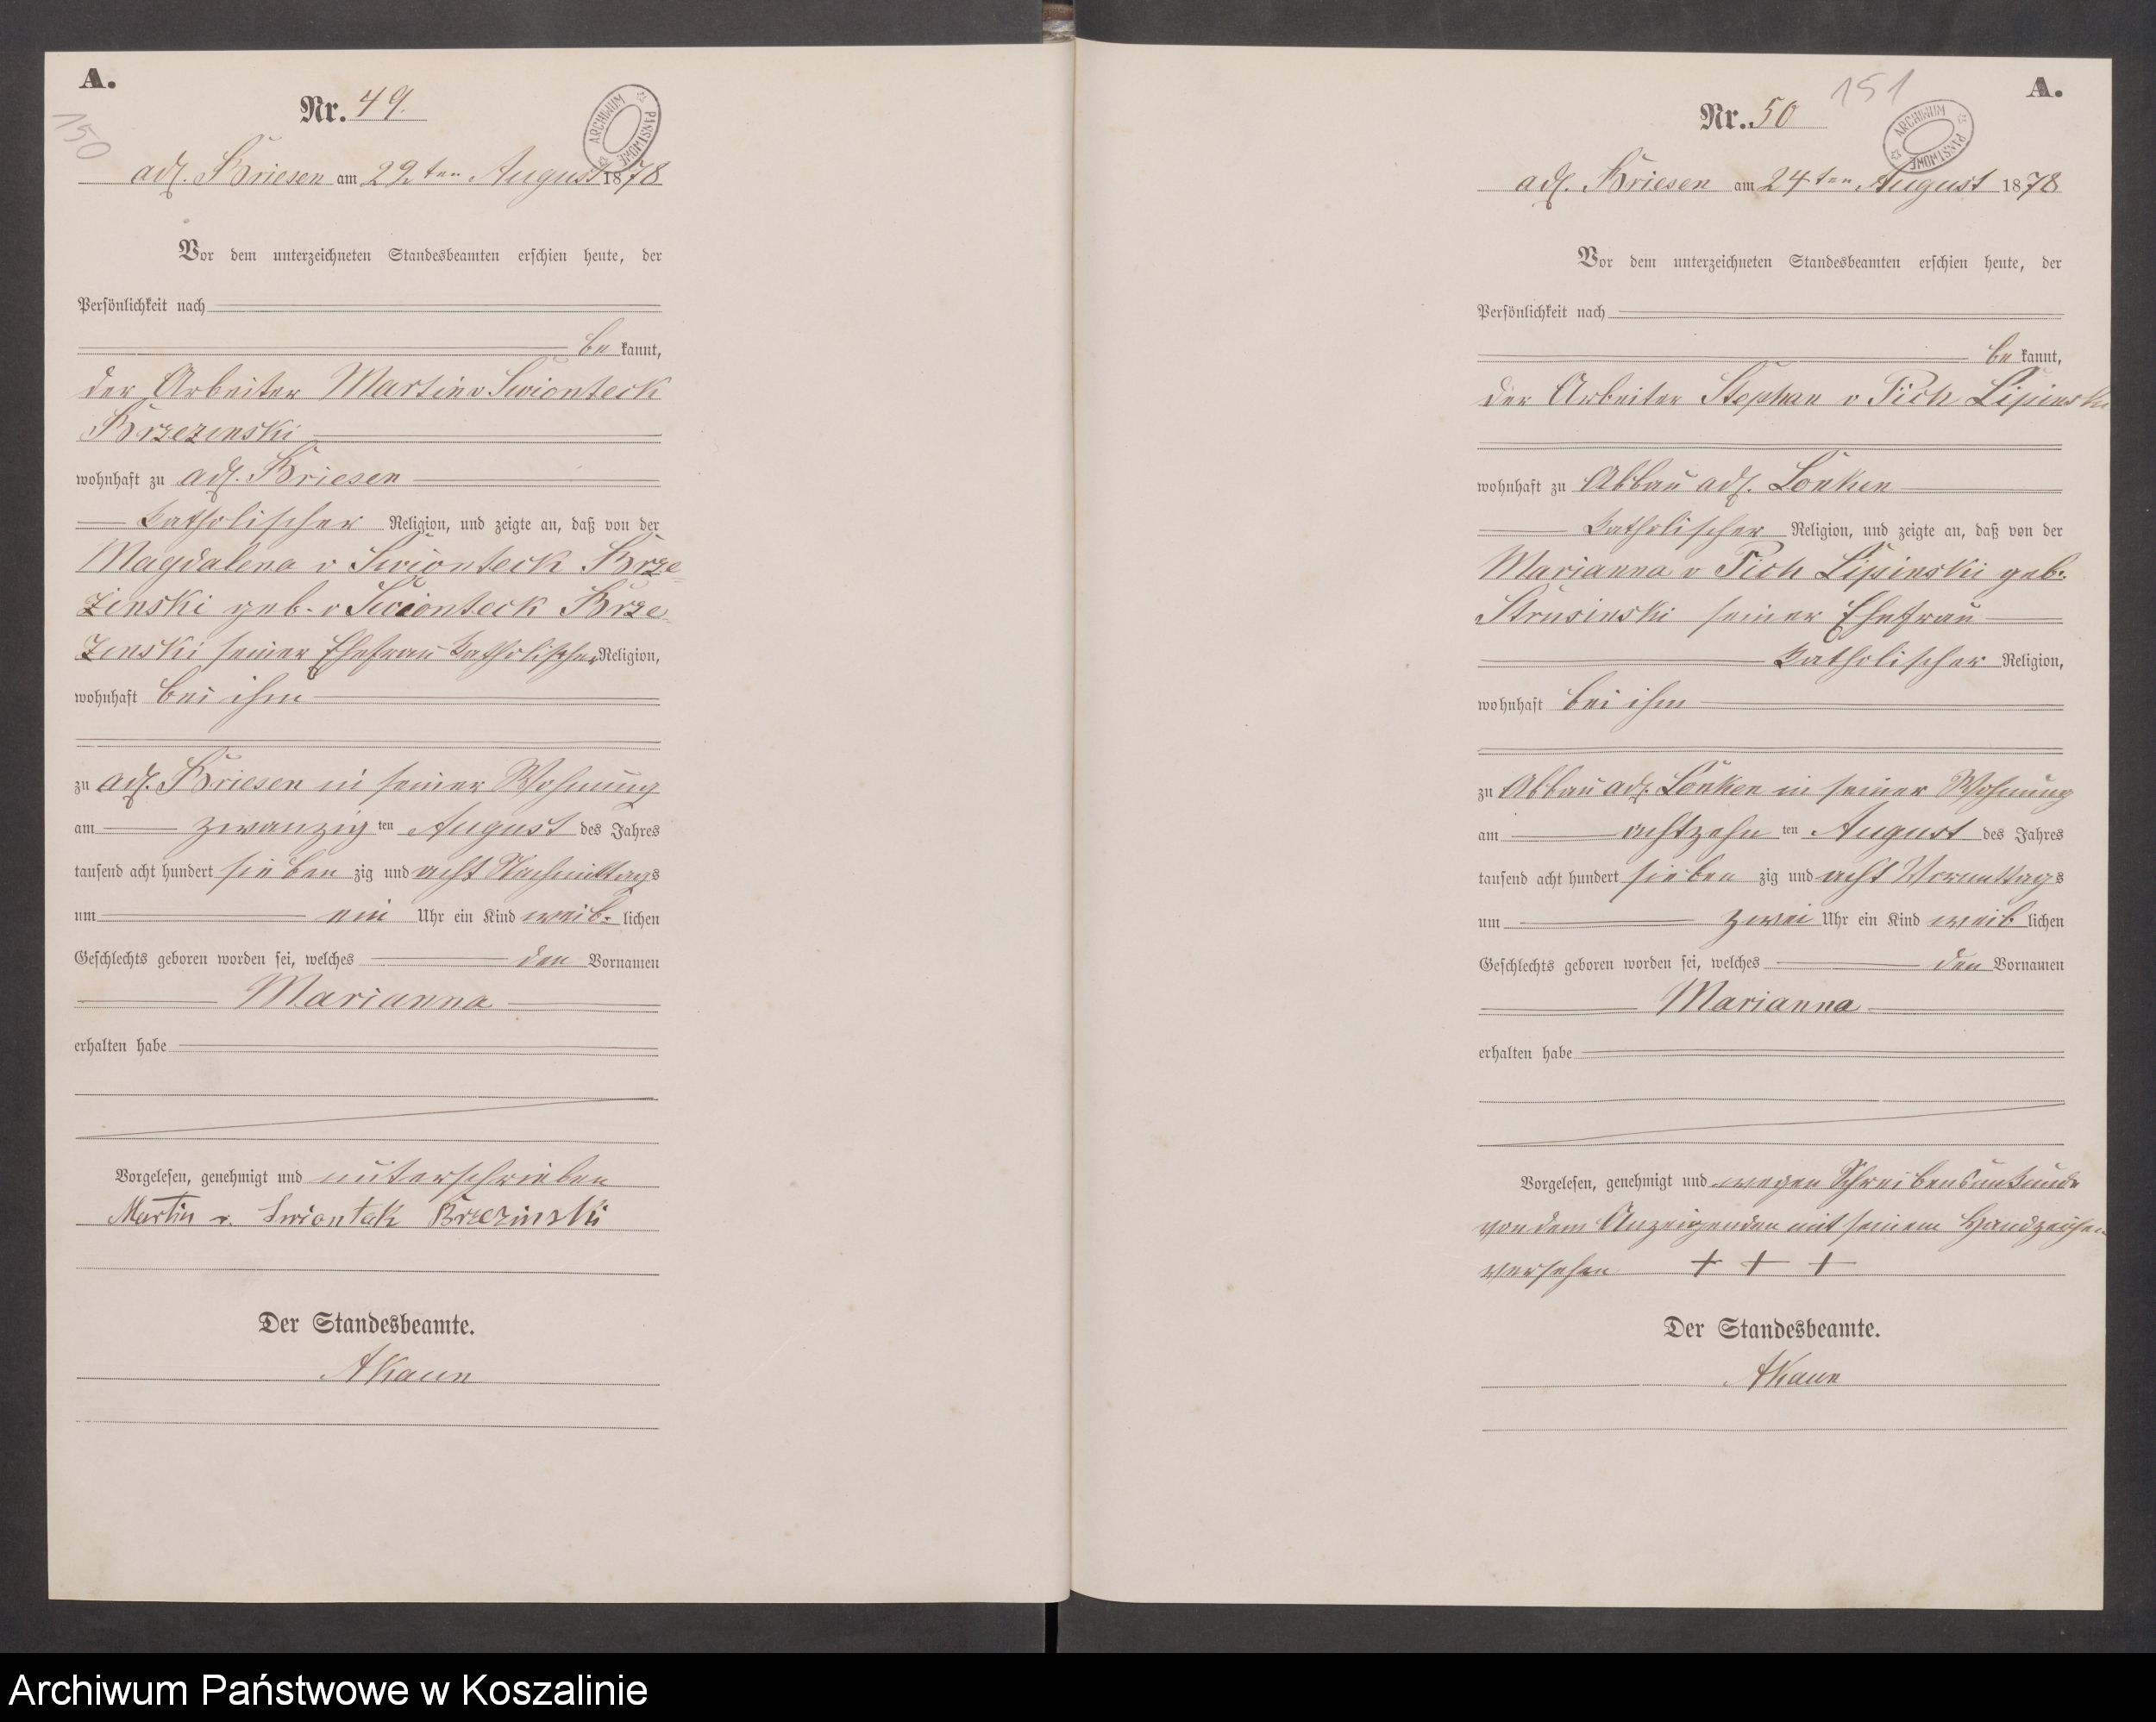 A.
150
Nr. 49.
ARCHIWUM PAŃSTWOWE
adl. Briesen am 22ten August 1878
Vor dem unterzeichneten Standesbeamten erschien heute, der
Persönlichkeit nach
be kannt,
der Arbeiter Martin v Swionteck
Brzezinski
wohnhaft zu adl. Briesen
katholischer Religion, und zeigte an, daß von der
Magdalena v Swionteck Brze-
zinski geb. v Swionteck Brze-
zinski seiner Ehefrau katholischer Religion,
wohnhaft bei ihm
zu adl. Briesen in seiner Wohnung
am zwanzig ten August des Jahres
tausend acht hundert sieben zig und acht Nachmittags
um ein Uhr ein Kind weib- lichen
Geschlechts geboren worden sei, welches den Vornamen
Marianna
erhalten habe
Vorgelesen, genehmigt und unterschrieben
Martin v. Swiontek Brzezinski
Der Standesbeamte.
AKaun
A.
151
Nr. 50
ARCHIWUM PAŃSTWOWE
adl. Briesen am 24ten August 1878
Vor dem unterzeichneten Standesbeamten erschien heute, der
Persönlichkeit nach
be kannt,
der Arbeiter Stephan v Pich Lipinski
wohnhaft zu Abbau adl. Lonken
katholischer Religion, und zeigte an, daß von der
Marianna v Pich Lipinski geb.
Strusinski seiner Ehefrau
katholischer Religion,
wohnhaft bei ihm
zu Abbau adl. Lonken in seiner Wohnung
am achtzehn ten August des Jahres
tausend acht hundert sieben zig und acht Vormittags
um zwei Uhr ein Kind weib lichen
Geschlechts geboren worden sei, welches den Vornamen
Marianna
erhalten habe
Vorgelesen, genehmigt und wegen Schreibensunkunde
von dem Anzeigenden mit seinem Handzeichen
versehen + + +
Der Standesbeamte.
AKaun
Archiwum Państwowe w Koszalinie